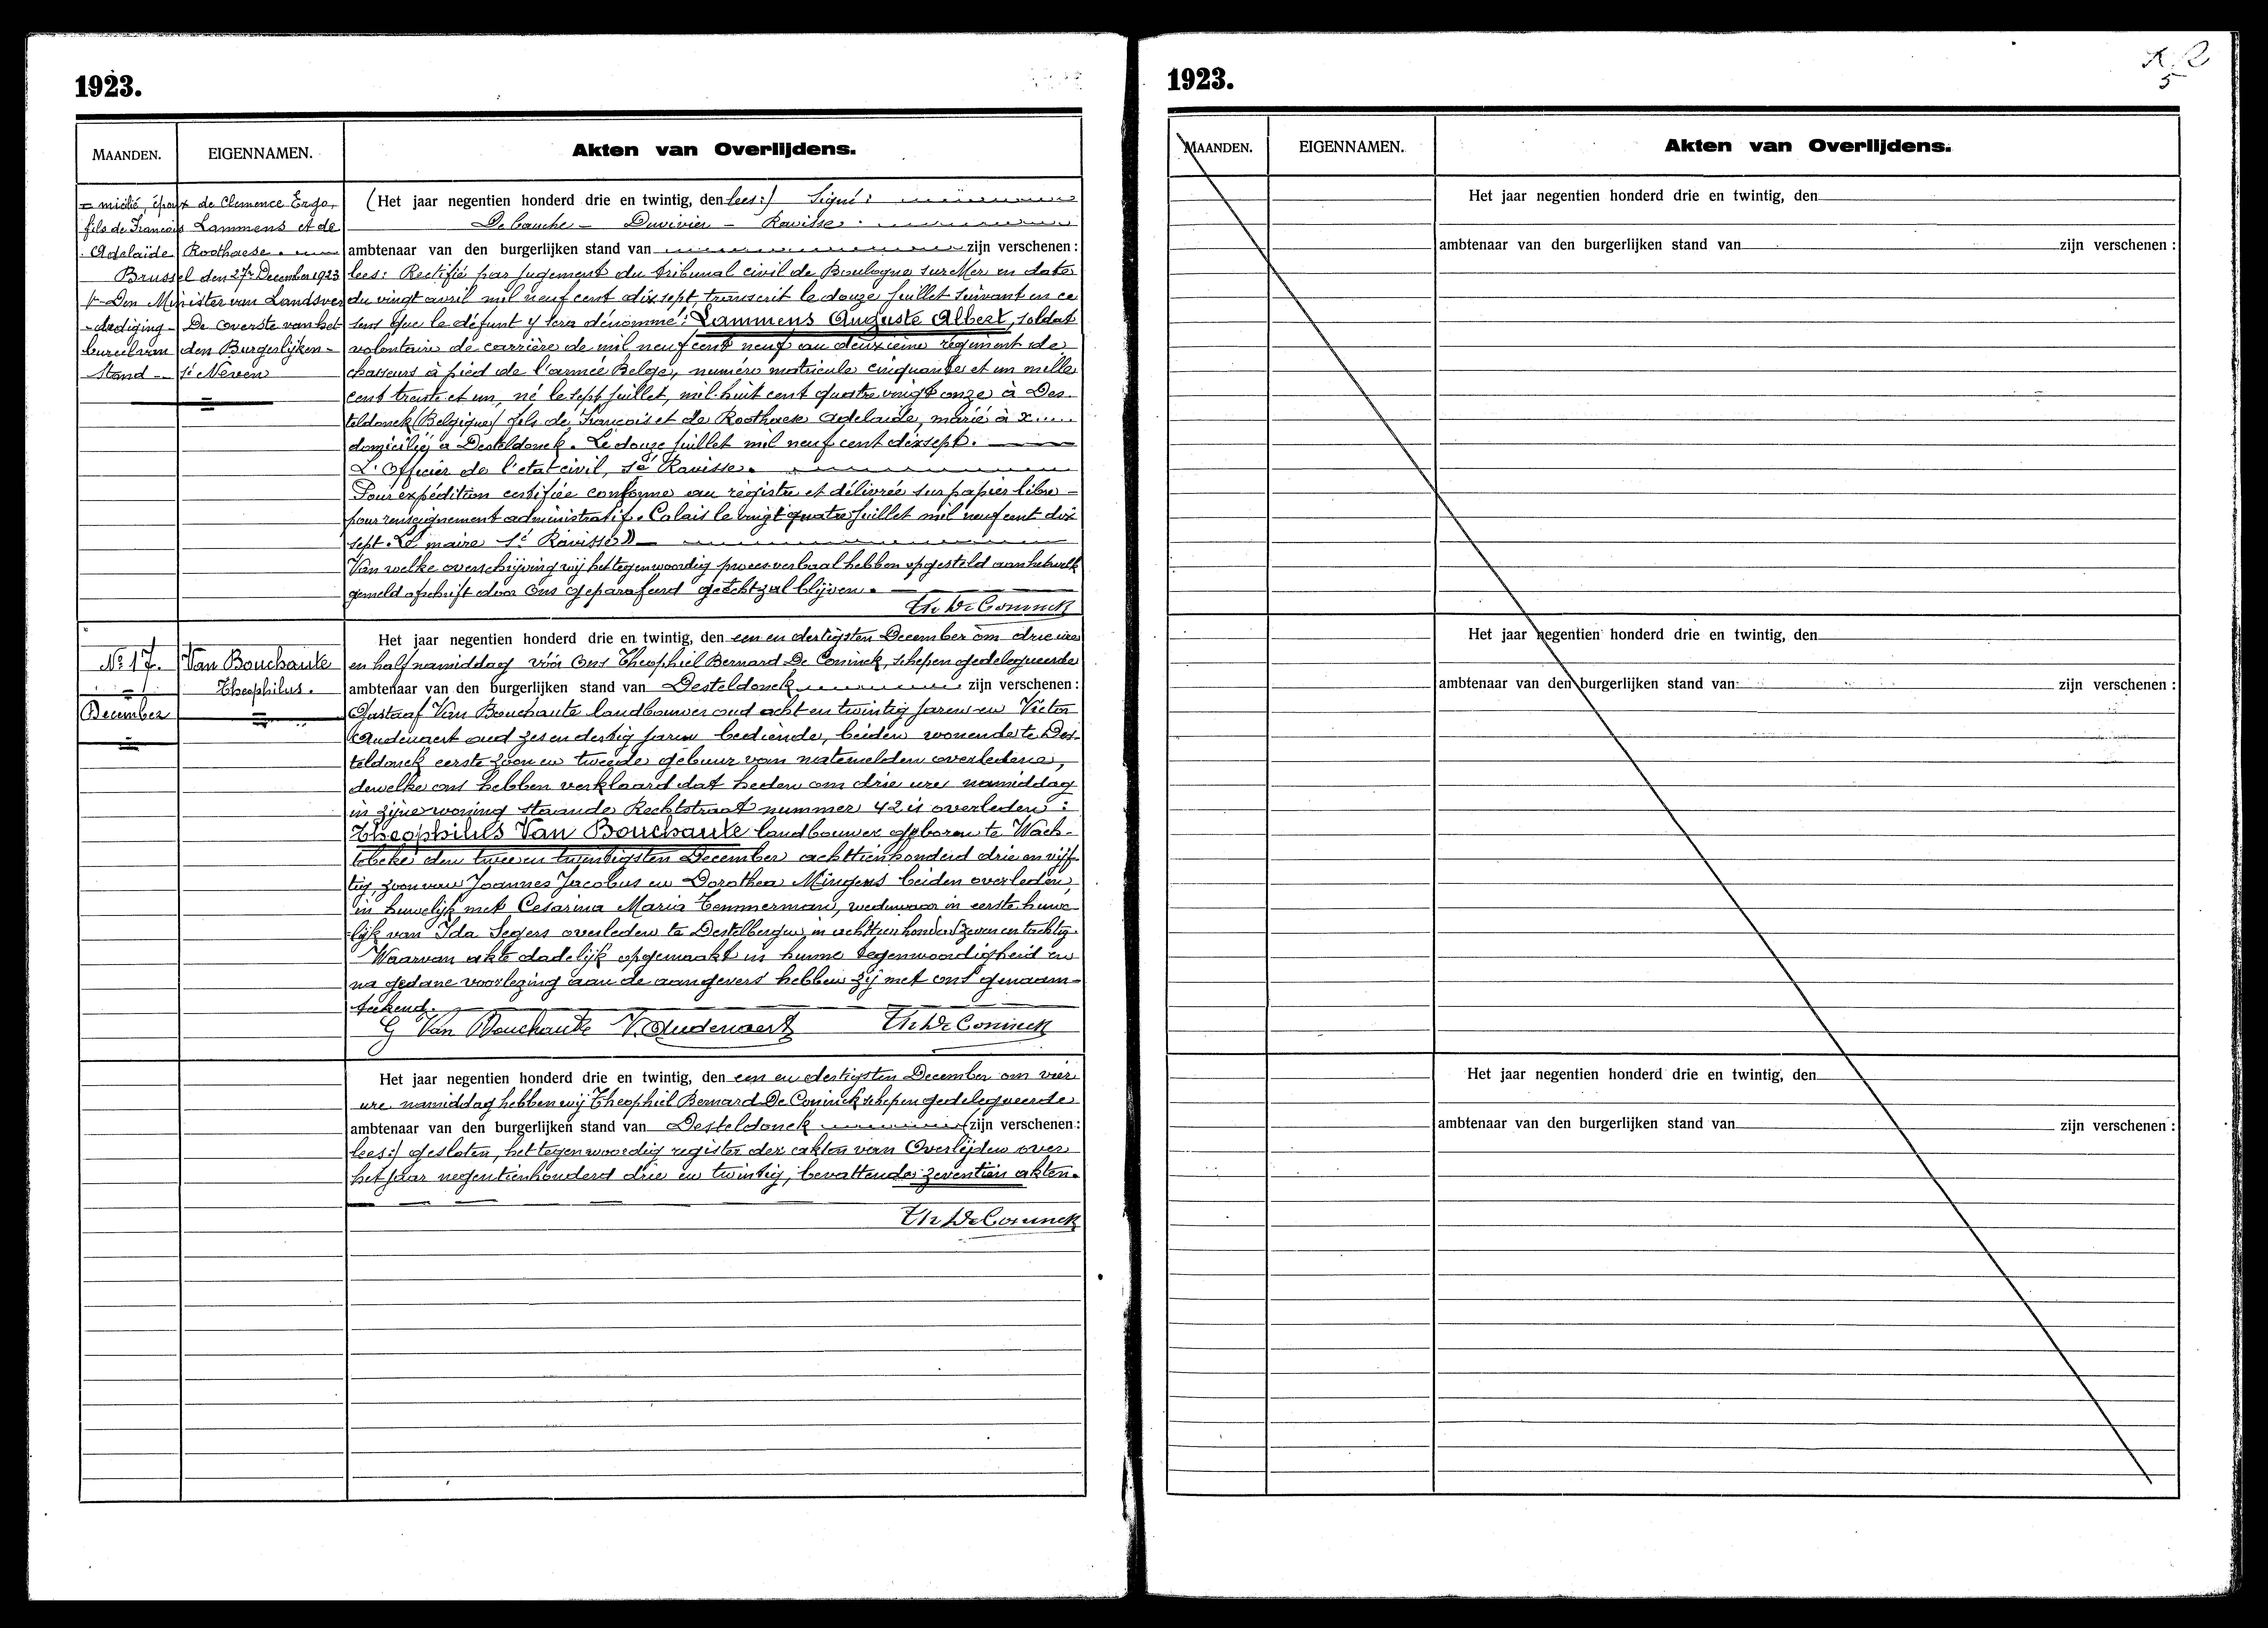 1923.
MAANDEN. EIGENNAMEN. Akten van Overlijdens.
= micilié, époux de Clemence Ergo,
fils de François Lammens et de
Adelaïde Roothaese.
Brussel den 27n December 1923
Den Minister van Landsver
-dediging - De overste van het
bureel van den Burgerlijken -
Stand - sé Nèven
(Het jaar negentien honderd drie en twintig, den lees:) Signé:
Debauche - Duvivier - Ravisse.
ambtenaar van den burgerlijken stand van zijn verschenen:
lees: Rectifié par jugement du tribunal civil de Boulogne sur Mer en date
du vingt avril mil neuf cent dix sept, transcrit le douze juillet suivant en ce
sens que le défunt y sera dénommé: Lammens Auguste Albert, soldat
volontaire de carrière de mil neuf cent neuf au deuxième régiment de
chasseurs à pied de l'armée Belge, numéro matricule cinquante et un mille
cent trente et un, né le sept juillet, mil huit cent quatre vingt onze à Des-
teldonck (Belgique) fils de François et de Roothaese Adelaide, marié à x.....
domicilié à Desteldonck. Le douze juillet mil neuf cent dix sept.
L'Officier de l'état civil, sé Ravisse.
Pour expédition certifiée conforme au régistre et délivrée sur papier libre -
pour renseignement administratif. Calais le vingt quatre juillet mil neuf cent dix
sept. Le maire sé Ravisse))
Van welke overschrijving wij het tegenwoordig proces-verbaal hebben opgesteld aan hetwelk
gemeld afschrift door Ons geparafeerd gehecht zal blijven.
Th De Coninck
No 17.
December
Van Bouchaute
Theophilus.
Het jaar negentien honderd drie en twintig, den een en dertigsten December om drie ure
en half namiddag vóór Ons Theophiel Bernard De Coninck, schepen gedelegueerde
ambtenaar van den burgerlijken stand van Desteldonck zijn verschenen:
Gustaaf Van Bouchaute landbouwer oud acht en twintig jaren en Victor
Audenaert oud zes en dertig jaren bediende, beiden wonende te Des-
teldonck eerste zoon en tweede gebuur van natemelden overledene,
dewelke ons hebben verklaard dat heden om drie ure namiddag
in zijne woning staande Rechtstraat nummer 42 is overleden:
Theophilus Van Bouchaute landbouwer geboren te Wach-
tebeke den twee en twintigsten December achttienhonderd drie en vijf-
tig, zoon van Joannes Jacobus en Dorothea Mingens beiden overleden,
in huwelijk met Cesarina Maria Temmerman, weduwaar in eerste huwe-
lijk van Ida Segers overleden te Destelbergen in achttien honderd zeven en tachtig.
Waarvan akte dadelijk opgemaakt in hunne tegenwoordigheid en
na gedane voorlezing aan de aangevers hebben zij met ons genaam-
teekend.
G Van Bouchaute V. Audenaert Th De Coninck
Het jaar negentien honderd drie en twintig, den een en dertigsten December om vier
ure namiddag hebben wij Theophiel Bernard De Coninck schepen gedelegueerde
ambtenaar van den burgerlijken stand van Desteldonck (zijn verschenen:
lees:) gesloten, het tegenwoordig register der akten van Overlijden over
het jaar negentienhonderd drie en twintig, bevattende zeventien akten.
Th De Coninck
1923.
5
MAANDEN. EIGENNAMEN. Akten van Overlijdens.
Het jaar negentien honderd drie en twintig, den
ambtenaar van den burgerlijken stand van zijn verschenen:
Het jaar negentien honderd drie en twintig, den
ambtenaar van den burgerlijken stand van zijn verschenen:
Het jaar negentien honderd drie en twintig, den
ambtenaar van den burgerlijken stand van zijn verschenen: